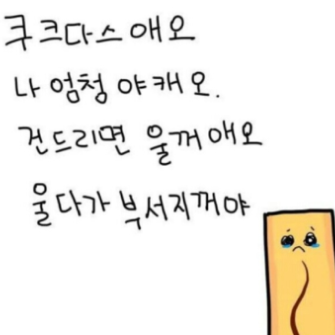 쿠크다스애오
나 엄청 야캐오.
건드리면 울꺼애오
울다가 부서지꺼야